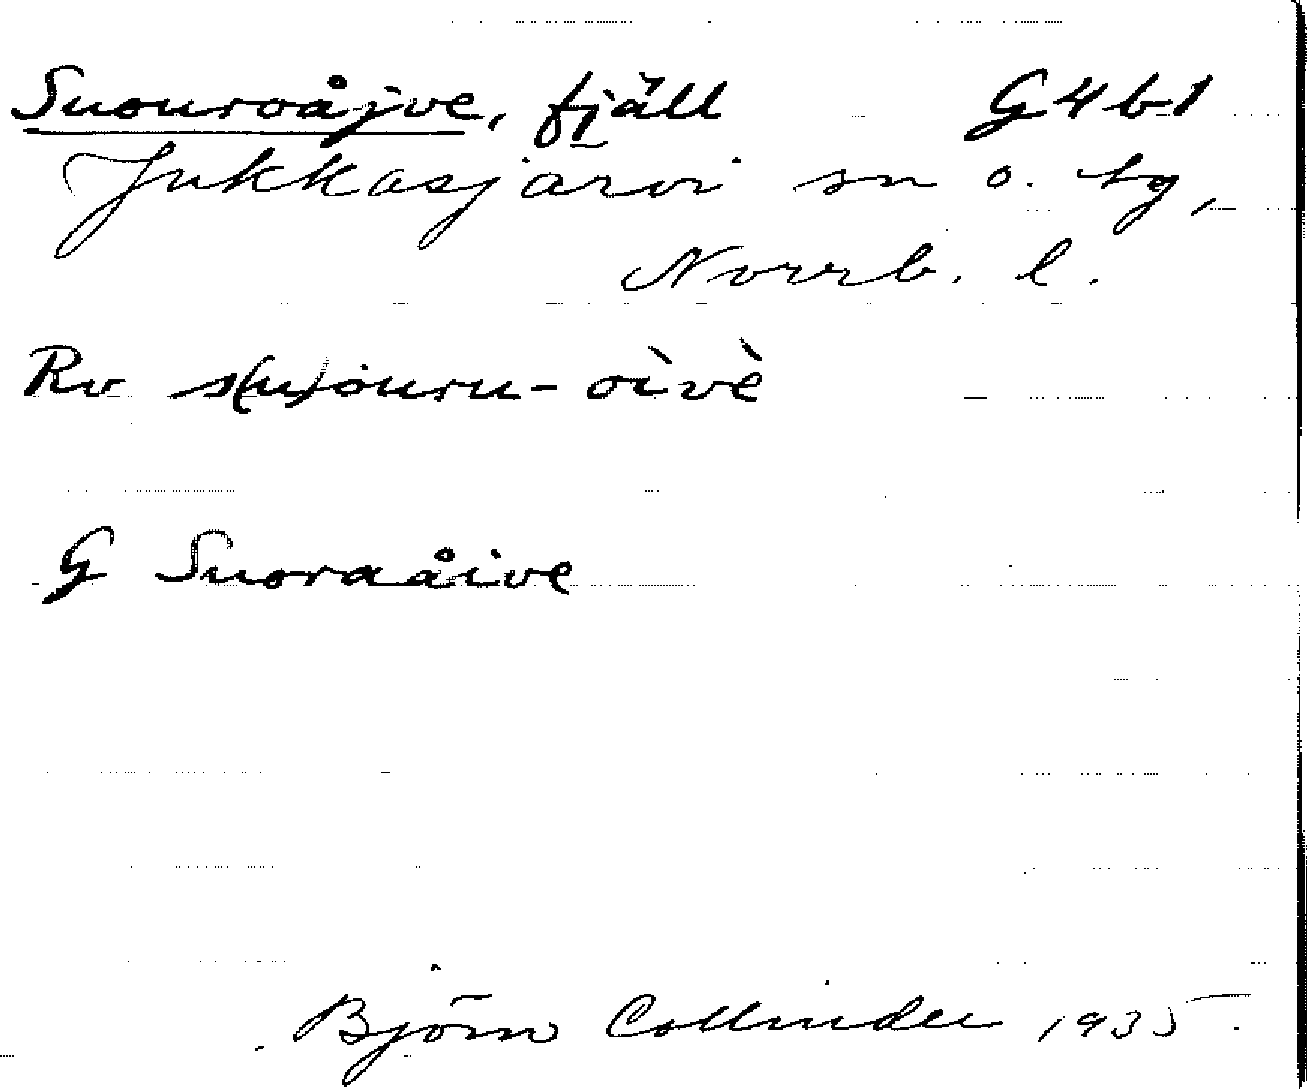 Suouroåjve, fjäll G4b1
Jukkasjärvi sn o. tg,
Norrb. l.
Rv s(u)ouru-oìvè
G Suoraåive
Björn Collinder 1935.